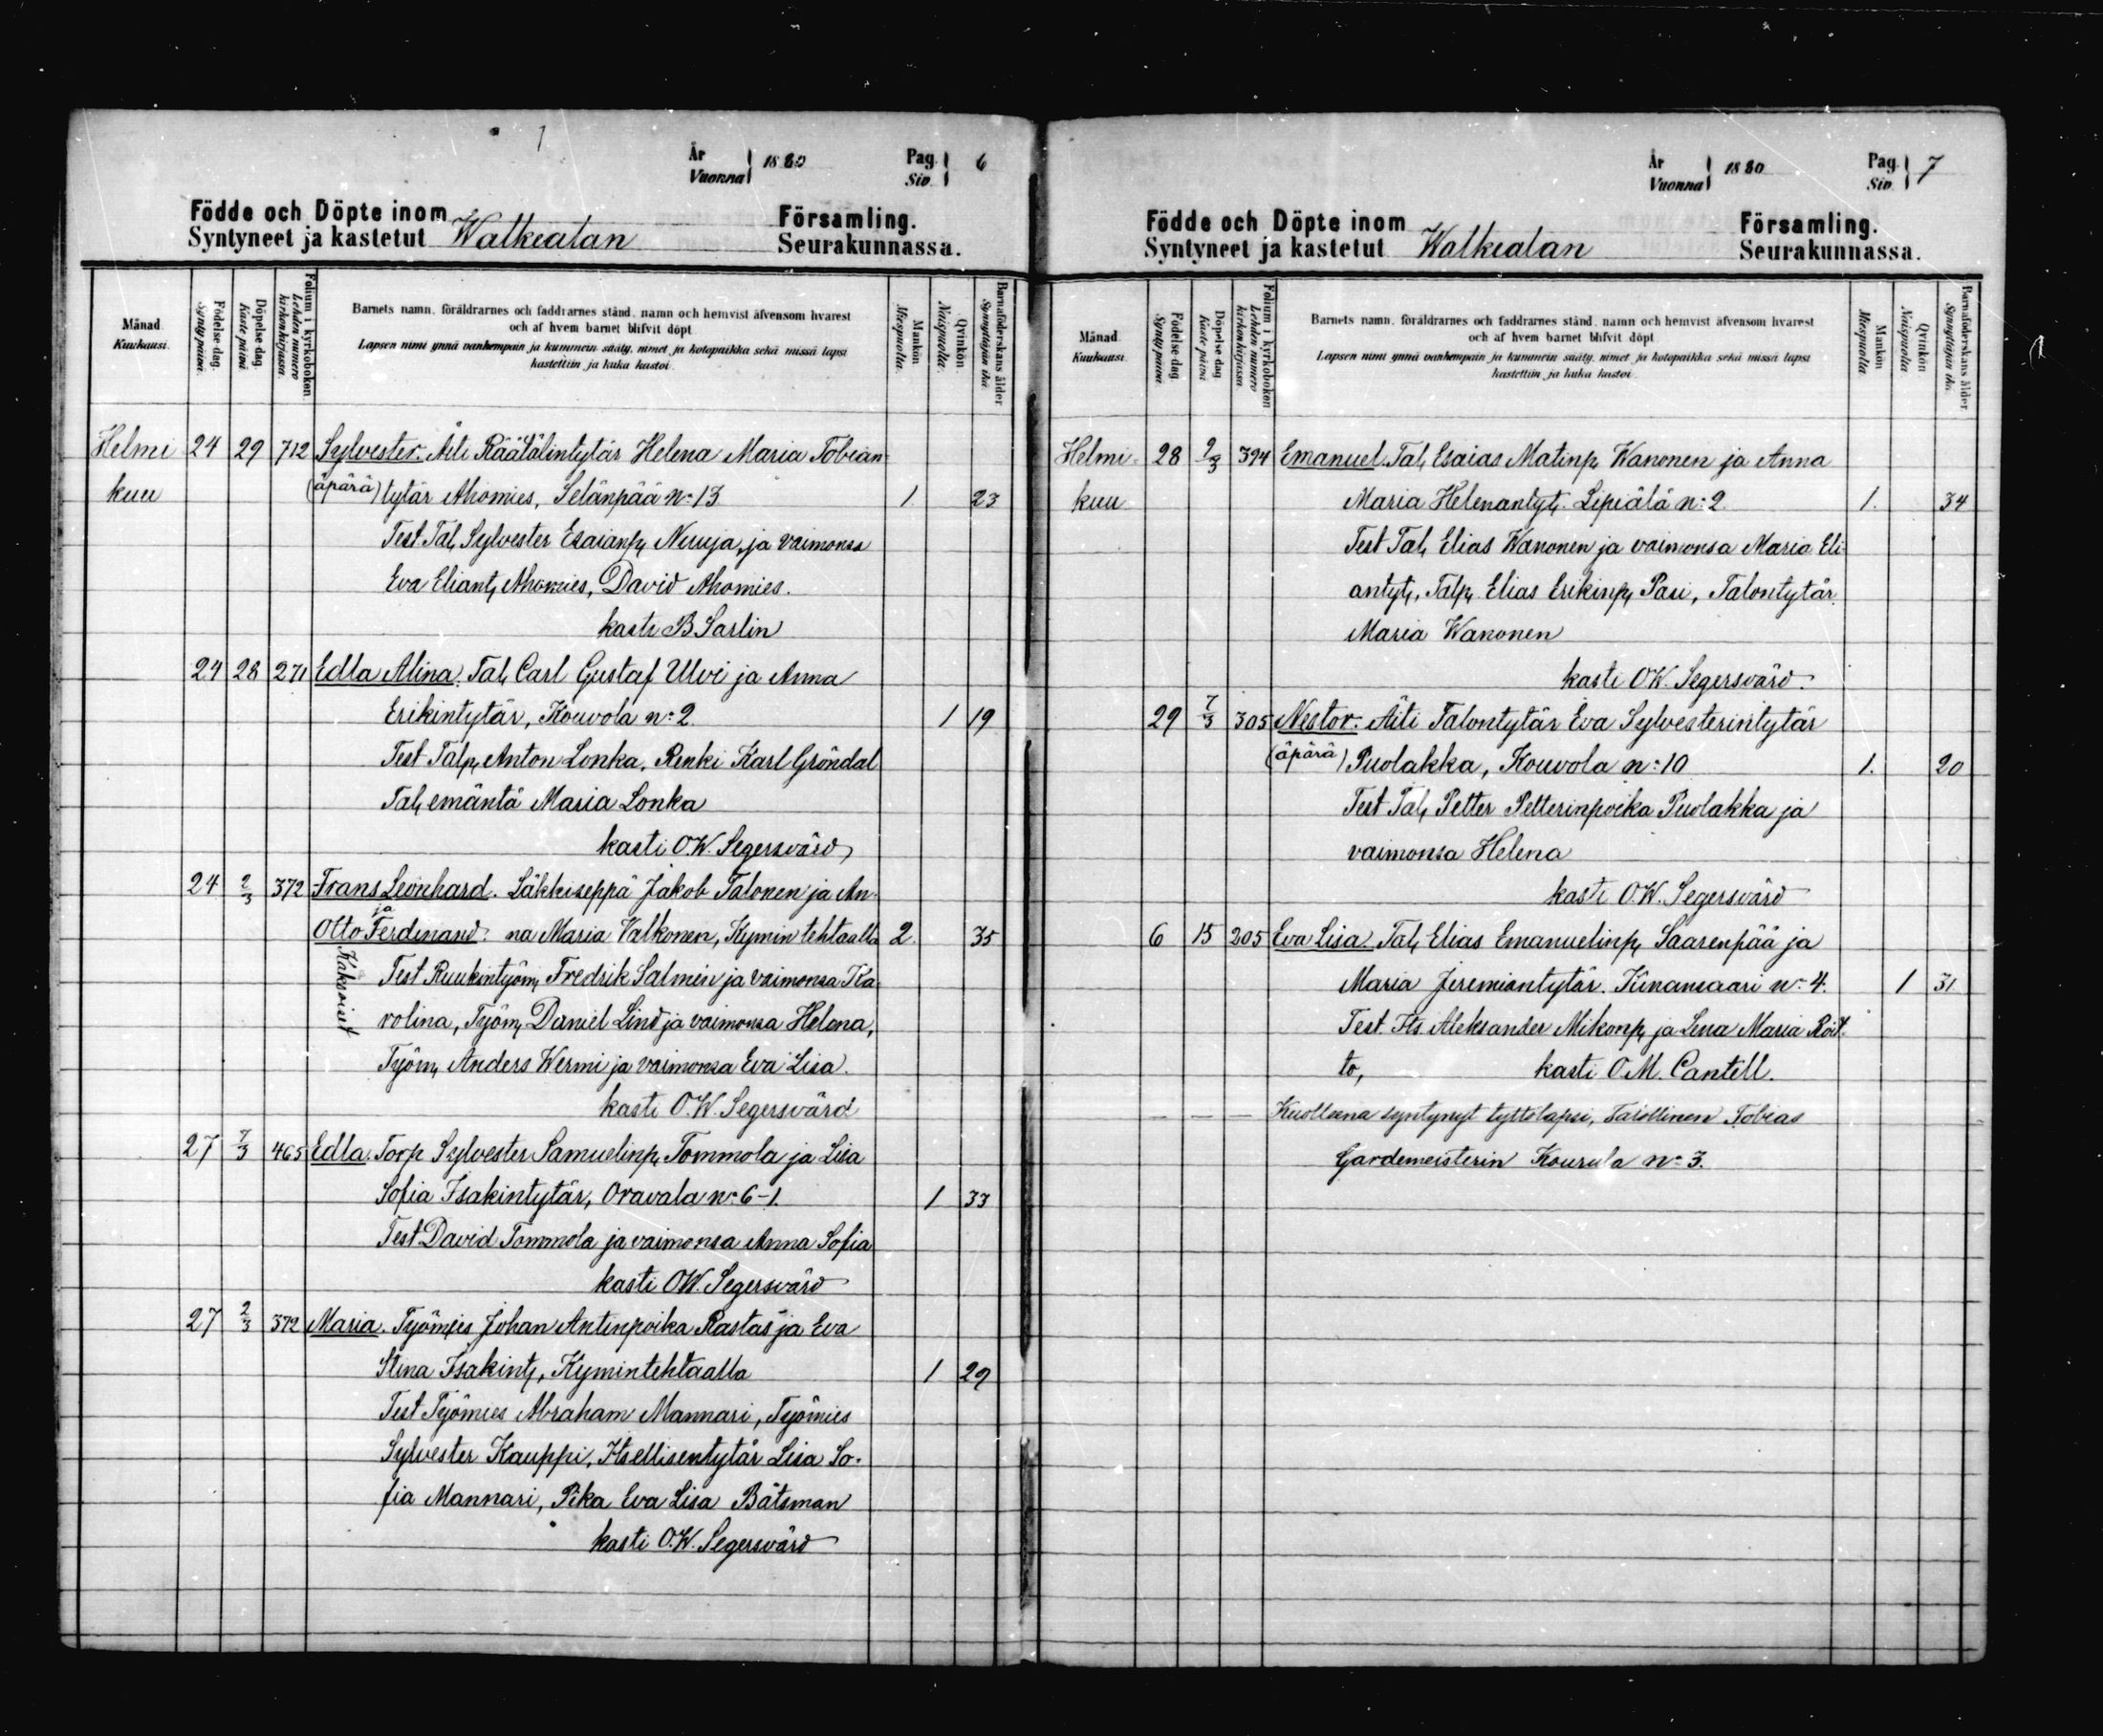 År
Vuonna 1880
Pag.
Siv. 6
Födde och Döpte inom
Syntyneet ja kastetut Walkealan
Församling.
Seurakunnassa.
Månad.
Kuukausi.
Födelse dag.
Synty päivä.
Döpelse dag.
Kaste päivä.
Folium i kyrkoboken
Lehden numero kirkonkirjassa.
Barnets namn, föräldrarnes och faddrarnes stånd, namn och hemvist äfvensom hvarest
och af hvem barnet blifvit döpt.
Lapsen nimi ynnä vanhempain ja kummein sääty, nimet ja kotopaikka sekä missä lapsi
kastettiin ja kuka kastoi.
Mankön
Miespuolta.
Qvinkön.
Naispuolta.
Barnaföderskans ålder
Synnyttäjän ikä.
Helmi 24 29 712 Sylvester. Äiti Räätälintytär Helena Maria Tobian-
kuu (äpärä) tytär Ahomies, Selänpää No 13 1. 23
Test. Tal. Sylvester Esaianp. Nuuja, ja vaimonsa
Eva Eliant. Ahomies, David Ahomies.
kasti B Sarlin
24 28 271 Edla Alina. Tal. Carl Gustaf Ulvi ja Anna
Erikintytär, Kouvola No 2. 1 19
Test Talp. Anton Lonka, Renki Karl Gröndal
Tal. emäntä Maria Lonka
kasti O.W. Segersvärd
24 2/3 372 Frans Leonhard. Läkkiseppä Jakob Talonen ja An-
ja
Otto Ferdinand. na Maria Valkonen, Kymin tehtaalla 2. 35
Kaksoiset
Test Ruukintyöm. Fredrik Salmin ja vaimonsa Ka-
rolina, Työm. Daniel Lind ja vaimonsa Helena,
Työm. Anders Wermi ja vaimonsa Eva Lisa.
kasti O.W. Segersvärd
27 7/3 465 Edla. Torp Sylvester Samuelinp. Tommola ja Lisa
Sofia Isakintytär, Oravala No 6-1. 1 33
Test David Tommola ja vaimonsa Anna Sofia
kasti OW. Segersvärd
27 2/3 372 Maria. Työmies Johan Antinpoika Rastas ja Eva
Stina Isakint., Kymintehtaalla 1 29
Test Työmies Abraham Mannari, Työmies
Sylvester Kauppi, Itsellisentytär Lisa So-
fia Mannari, Pika Eva Lisa Båtsman
kasti O.W. Segersvärd
År
Vuonna 1880
Pag.
Siv. 7
Födde och Döpte inom
Syntyneet ja kastetut Walkealan
Församling.
Seurakunnassa.
Månad.
Kuukausi.
Födelse dag.
Synty päivä.
Döpelse dag
Kaste päivä
Folium i kyrkoboken
Lehden numero kirkonkirjassa.
Barnets namn, föräldrarnes och faddrarnes stånd, namn och hemvist äfvensom hvarest
och af hvem barnet blifvit döpt
Lapsen nimi ynnä vanhempain ja kummein sääty, nimet ja kotopaikka sekä missä lapsi
kastettiin ja kuka kastoi.
Mankön
Miespuolta
Qvinkön
Naispuolta
Barnaföderskans ålder
Synnyttäjän ikä.
Helmi- 28 2/3 394 Emanuel. Tal. Esaias Matinp. Wanonen ja Anna
kuu Maria Helenantyt. Lipiälä No 2. 1. 34
Test Tal. Elias Wanonen ja vaimonsa Maria Eli-
antyt., Talp. Elias Erikinp. Pasi, Talontytär
Maria Wanonen
kasti O.W. Segersvärd.
29 7/3 305 Nestor. Äiti Talontytär Eva Sylvesterintytär
(äpärä) Puolakka, Kouvola No 10 1. 20
Test Tal. Petter Petterinpoika Puolakka ja
vaimonsa Helena
kasti O.W. Segersvärd
6 15 205 Eva Lisa. Tal. Elias Emanuelinp. Saarenpää ja
Maria Jeremiantytär. Kinansaari No 4. 1 31
Test. Its. Aleksander Mikonp. ja Lena Maria Roit-
to, kasti O.M. Cantell.
— — — Kuolleena syntynyt tyttölapsi, Talollinen Tobias
Gardemeisterin Kourula No 3.